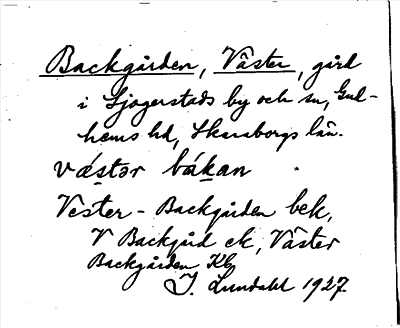 Backgården, Väster, gård
i Sjogerstads by och sn, Gud-
hems hd, Skaraborgs län.
væ̀stər bákan
Vester-Backgården bek,
V Backgård ek, Väster
Backgården Kb
I. Lundahl 1927.